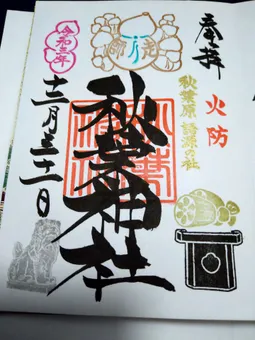 奉拝
火防
秋葉原 諸源の社
秋葉神社
令和三年
十二月三十一日